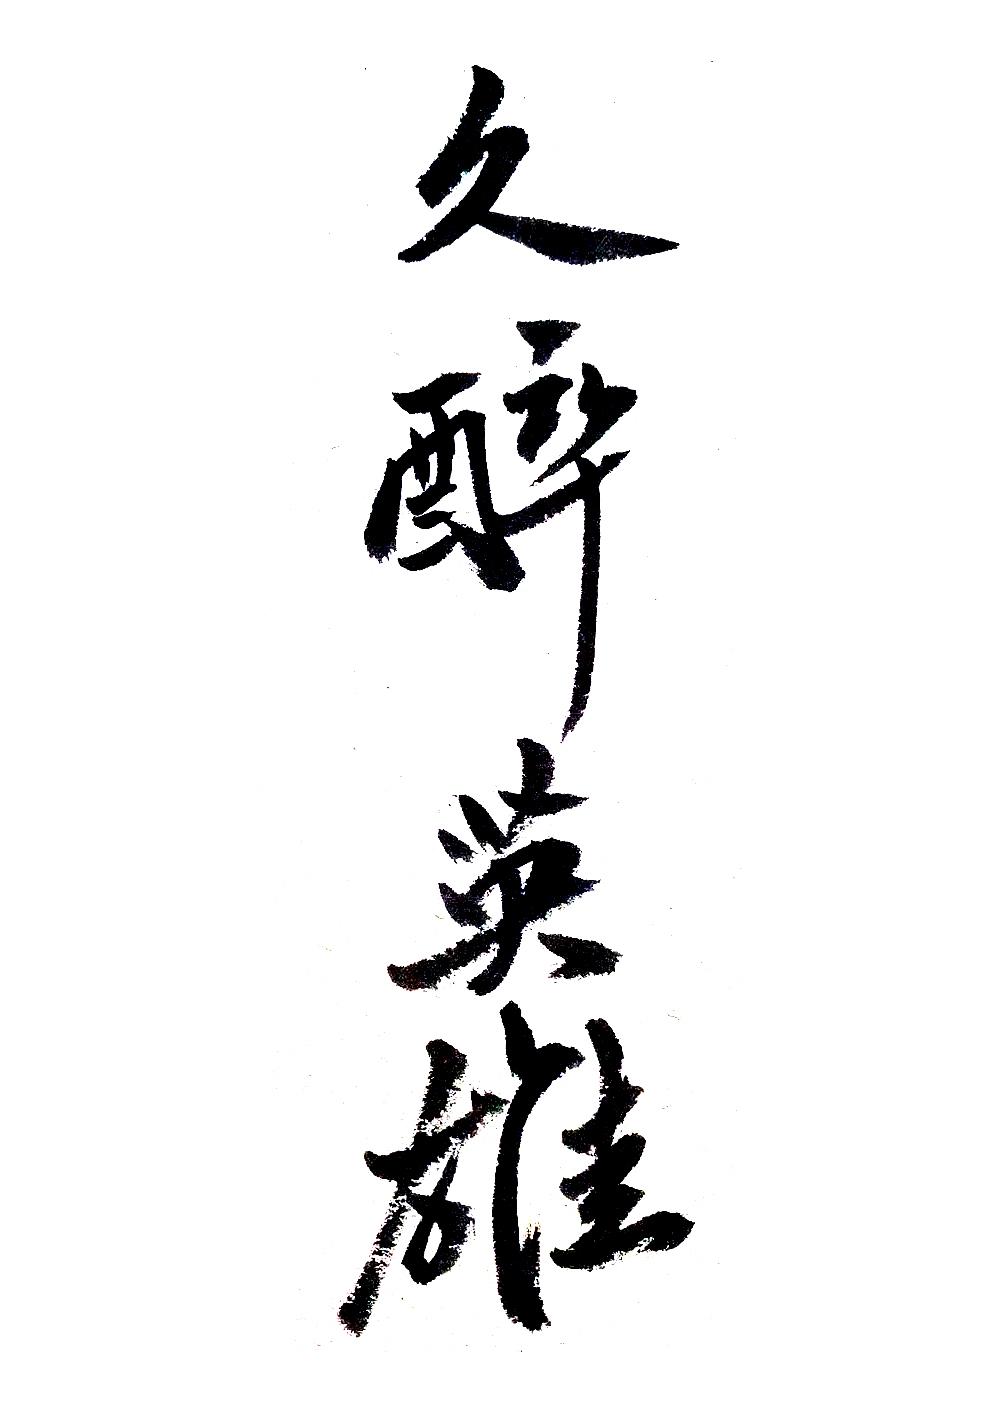 久醉英雄